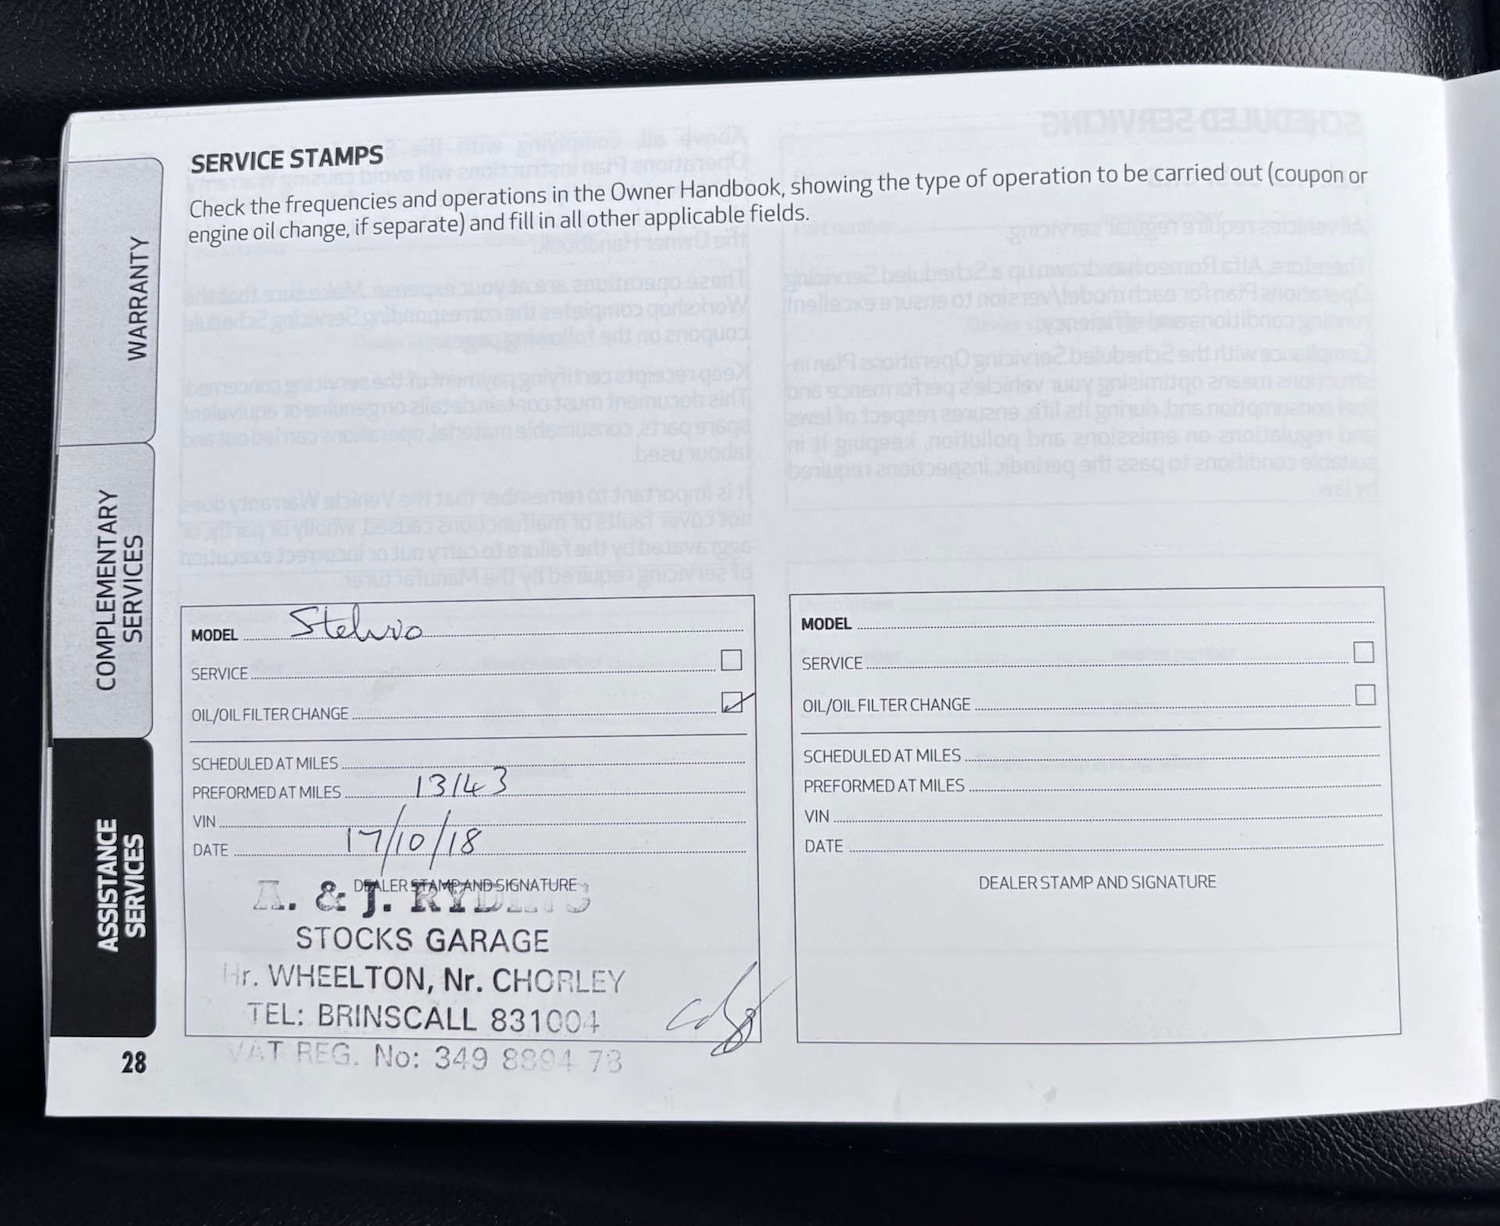 SERVICE STAMPS
Check the frequencies and operations in the Owner Handbook, showing the type of operation to be carried out (coupon or
engine oil change, if separate) and fill in all other applicable fields.
WARRANTY
COMPLEMENTARY
SERVICES
ASSISTANCE
SERVICES
MODEL Stelvio
SERVICE
OIL/OIL FILTER CHANGE
SCHEDULED AT MILES
PREFORMED AT MILES 13143
VIN
DATE 17/10/18
DEALER STAMP AND SIGNATURE
A. & J.
STOCKS GARAGE
Hr. WHEELTON, Nr. CHORLEY
TEL: BRINSCALL 831004
VAT REG. No: 349 8894 78
MODEL
SERVICE
OIL/OIL FILTER CHANGE
SCHEDULED AT MILES
PREFORMED AT MILES
VIN
DATE
DEALER STAMP AND SIGNATURE
28